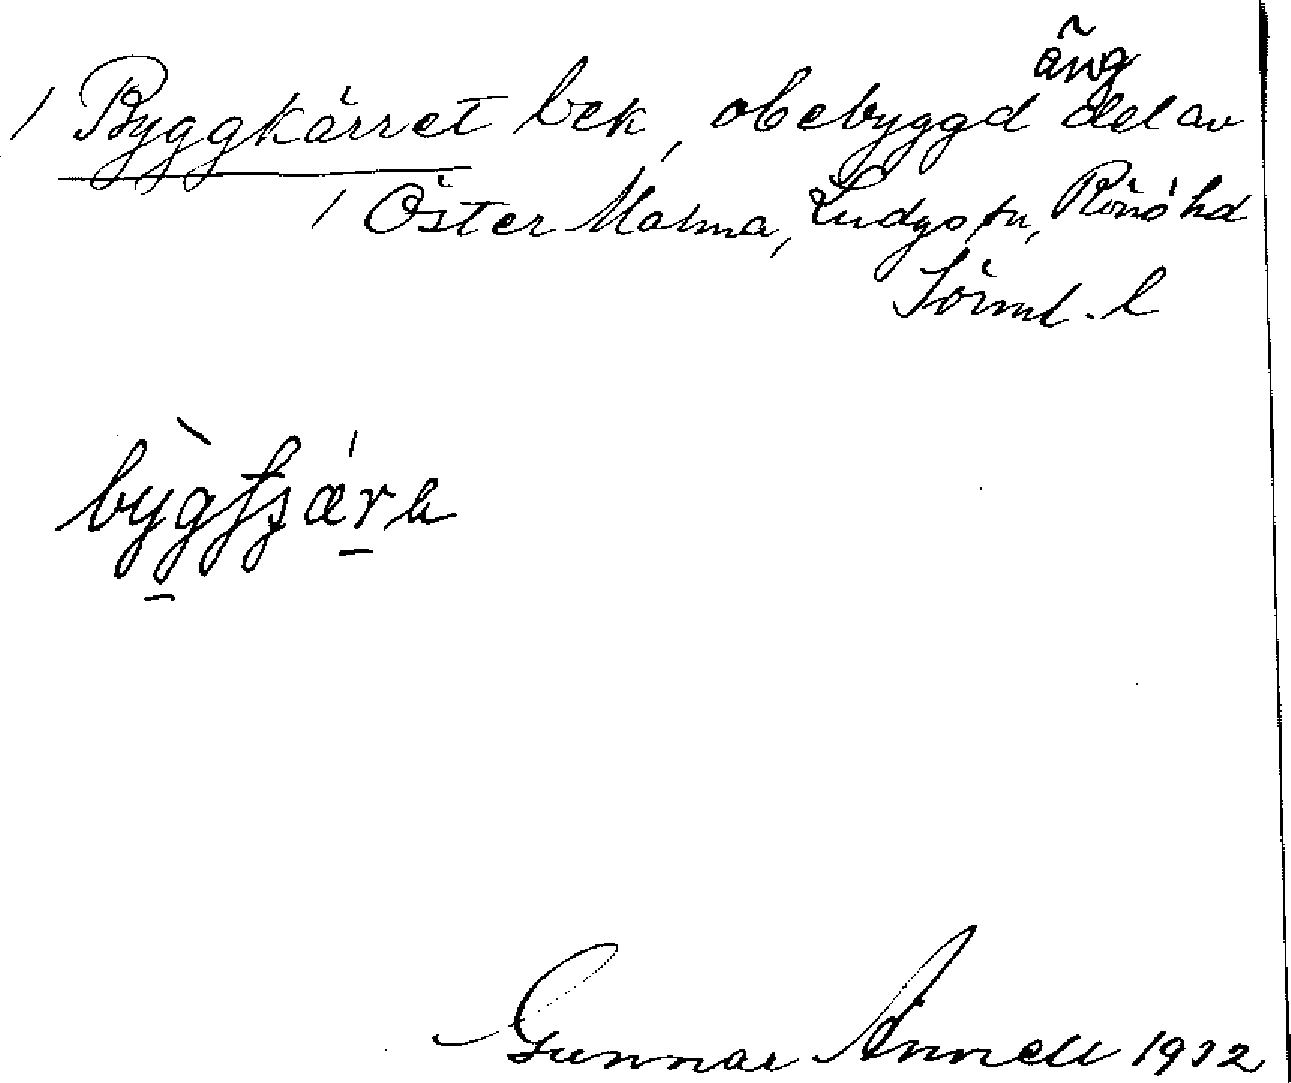 / Byggkärret bek, obebyggd äng del av
/ Öster Malma, Ludgo sn, Rönö hd
Sörml. l
bỳgfsǽra
Gunnar Annell 1932